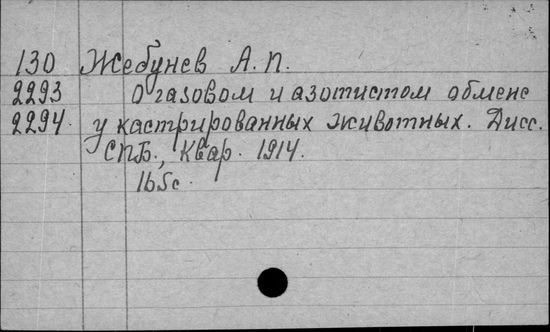 130 Жебунев А. П.
2293 О газовом и азотистом обмене
2294. у кастрированных животных. Дисс.
СПБ., Квар. 1914.
165с.